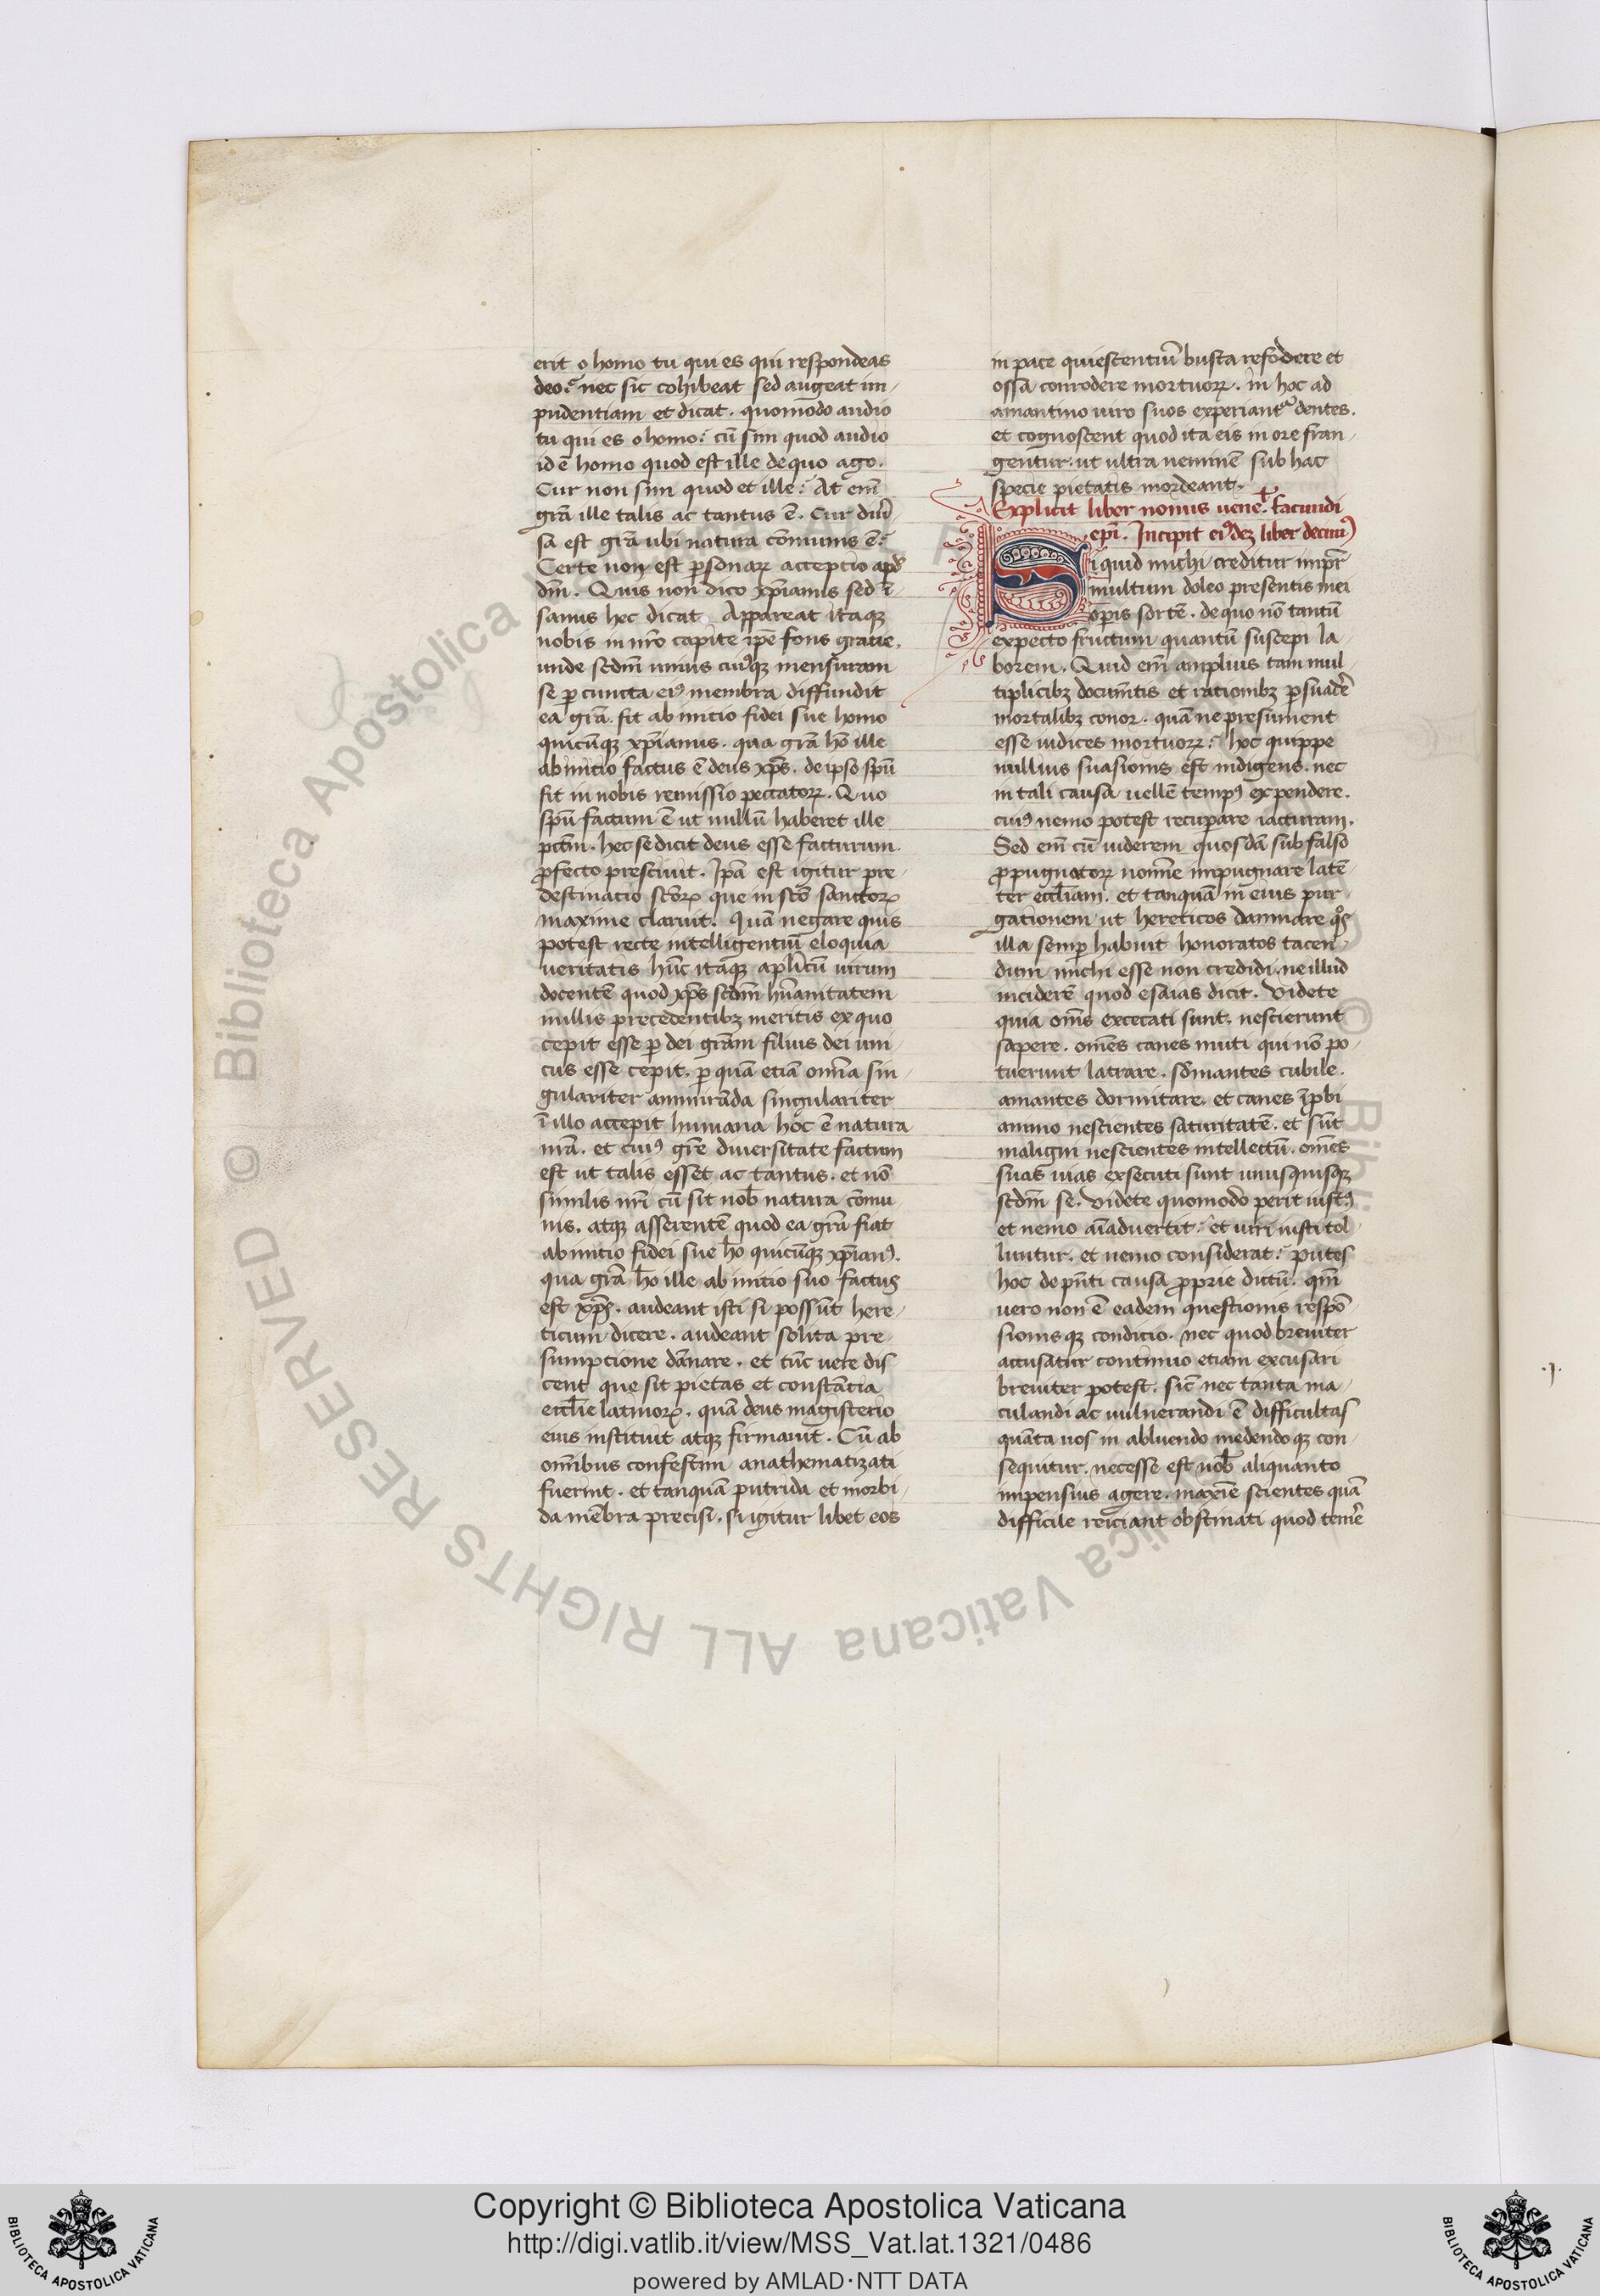 erit o homo tu qui es qui respondeas
deo? nec sic cohibeat sed augeat im-
pudentiam et dicat. quomodo audio
tu qui es o homo? cū sim quod audio
id ē homo quod est ille de quo ago.
Cur non sim quod et ille? At em̄
grā ille talis ac tantus ē. Cur diu̾-
sa est grā ubi natura cōmunis ē?
Certe non est ꝑsonaꝝ acceptio apd̾
dm̄. Quis non dico xp̄ianus sed ī-
sanus hec dicat. Appareat itaqꝫ
nobis in nr̄o capite ip̄e fons gratie.
unde scd̄m unius cuiꝰqꝫ mensuram
se ꝑ cuncta eiꝰ membra diffundit
ea grā. fit ab initio fidei sue homo
quicūqꝫ xp̄ianus. qua grā hō ille
ab initio factus ē deus xp̄s. de ipso spū
fit in nobis remissio peccatoꝝ. Quo
spū factum ē ut nullū haberet ille
pctm̄. hec se dicit deus esse facturum.
ꝓfecto presciuit. Ip̄a est igitur pre-
destinacio sctōꝝ que in sctō sanctoꝝ
maxime claruit. Quā negare quis
potest recte intelligentiū eloquia
ueritatis hūc itaqꝫ aplicū uirum
docentē quod xp̄s scd̄m hūanitatem
nullis precedentibꝫ meritis ex quo
cepit esse ꝑ dei grām filius dei uni-
cus esse cepit. ꝑ quā etiā omīa sin-
gulariter ammirāda singulariter
ī illo accepit humana hoc ē natura
nr̄a. et cuiꝰ grē diuersitate factum
est ut talis esset ac tantus. et nō
similis nr̄i cū sit nob̄ natura cōmu-
nis. atqꝫ asserentē quod ea grā fiat
ab initio fidei sue hō quicūqꝫ xp̄ianꝰ.
qua grā hō ille ab initio suo factus
est xp̄s. audeant isti si possūt here-
ticum dicere. audeant solita pre-
sumpcione dānare. et tūc uere dis-
cent que sit pietas et constācia
eccl̄ie latinoꝝ. quā deus magisterio
eius instituit atqꝫ firmauit. Cū ab
omībus confestim anathematizati
fuerint. et tanquā putrida et morbi-
da mēbra precisi. si igitur libet eos
in pace quiescentiū busta refōdere et
ossa conrodere mortuoꝝ. in hoc ad
amantino uiro suos experiant̾ dentes.
et cognoscent quod ita eis in ore fran-
gentur. ut ultra neminē sub hac
specie pietatis mordeant.
Explicit liber nonus uene. facundi
ep̄i. Incipit eiꝰdeꝫ liber decimꝰ
Siquid michi creditur impr̄
multum doleo presentis mei
oꝑis sortē. de quo nō tantū
expecto fructum quantū suscepi la-
borem. Quid em̄ amplius tam mul-
tiplicibꝫ documētis et rationibꝫ ꝑsuad̾e
mortalibꝫ conor. quā ne presument
esse iudices mortuoꝝ? hoc quippe
nullius suasionis est indigens. nec
in tali causa uellē tempꝰ expendere.
cuiꝰ nemo potest recuꝑare iacturam.
Sed em̄ cū uiderem quosdā sub falso
ꝓpugnatoꝝ nomīe impugnare latē-
ter eccl̄iam. et tanquā in eius pur-
gationem ut hereticos damnare qͦs
illa semꝑ habuit honoratos tacen-
dum michi esse non credidi. ne illud
inciderē quod esaias dicit. Videte
quia om̄s excecati sunt. nescierunt
sapere. omēs canes muti qui nō po-
tuerunt latrare. sōniantes cubile.
amantes dormitare. et canes īpbi
animo nescientes saturitatē. et sūt
maligni nescientes intellectū. omēs
suas uias exsecuti sunt unusquisqꝫ
scd̄m se. Videte quomodo perit iustꝰ
et nemo aīaduertit. et uiri iusti tol-
luntur. et nemo considerat? Putes
hoc de pn̄ti causa ꝓprie dictū. qm̄
uero non ē eadem questionis respō-
sionis qꝫ condicio. nec quod breuiter
accusatur continuo etiam excusari
breuiter potest. sic nec tanta ma-
culandi ac uulnerandi ē difficultas
quāta nos in abluendo medendo qꝫ con-
sequitur. necesse est nob̄ aliquanto
impensius agere. maxīe scientes quā
difficile reiciant obstinati quod tem̾e
Copyright © Biblioteca Apostolica Vaticana
http://digi.vatlib.it/view/MSS_Vat.lat.1321/0486
powered by AMLAD·NTT DATA
BIBLIOTECA APOSTOLICA VATICANA
BIBLIOTECA APOSTOLICA VATICANA
© Biblioteca Apostolica Vaticana ALL RIGHTS RESERVED